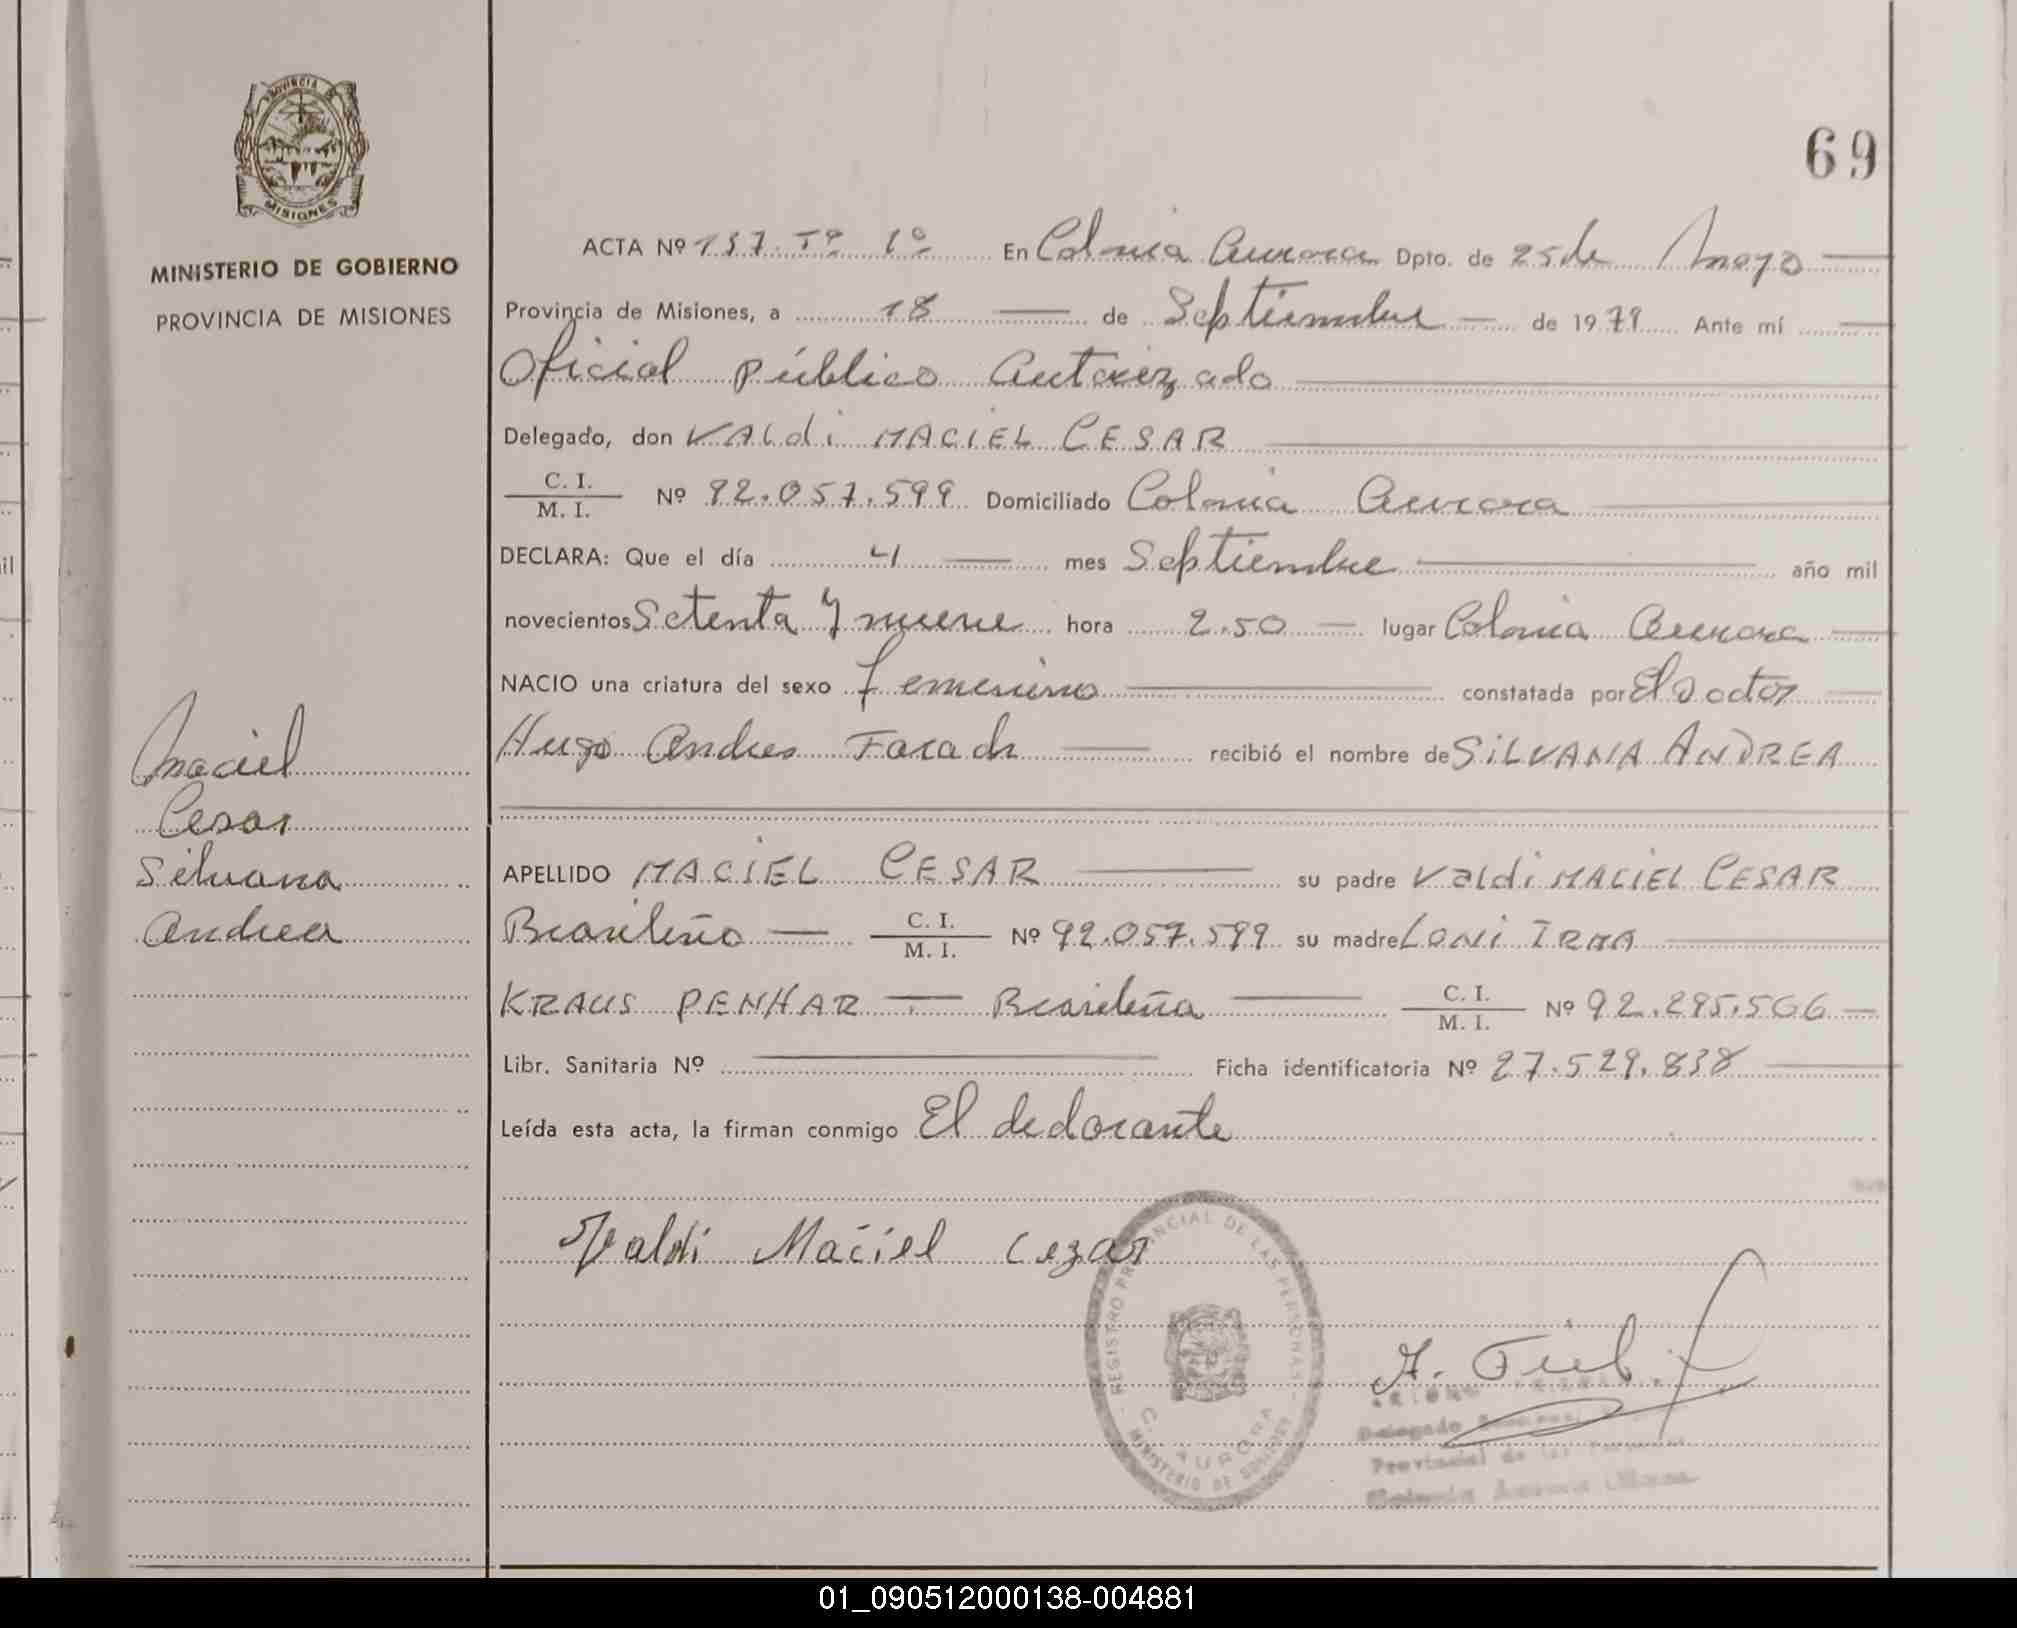 PROVINCIA DE
MISIONES
MINISTERIO DE GOBIERNO
PROVINCIA DE MISIONES
Maciel
Cesar
Silvana
Andrea
69
ACTA Nº 137. Tº 1º En Colonia Aurora Dpto. de 25 de Mayo
Provincia de Misiones, a 18 de Septiembre de 1979 Ante mí
Oficial Público Autorizado
Delegado, don VALdi MACIEL CESAR
C. I.
M. I. Nº 92.057.599 Domiciliado Colonia Aurora
DECLARA: Que el día 4 mes Septiembre año mil
novecientos Setenta y nueve hora 2.50 lugar Colonia Aurora
NACIO una criatura del sexo femenino constatada por El Doctor
Hugo Andres Farach recibió el nombre de SILVANA ANDREA
APELLIDO MACIEL CESAR su padre Valdi MACIEL CESAR
Brasileño C. I.
M. I. Nº 92.057.599 su madre LONI IRMA
KRAUS PENHAR Brasileña C. I.
M. I. Nº 92.295.566
Libr. Sanitaria Nº Ficha identificatoria Nº 27.529.838
Leída esta acta, la firman conmigo El declarante
Valdi Maciel Cezar
REGISTRO PROVINCIAL DE LAS PERSONAS
C. AURORA
MINISTERIO DE GOBIERNO
Delegado
Provincial de las Personas
Colonia Aurora
01_090512000138-004881